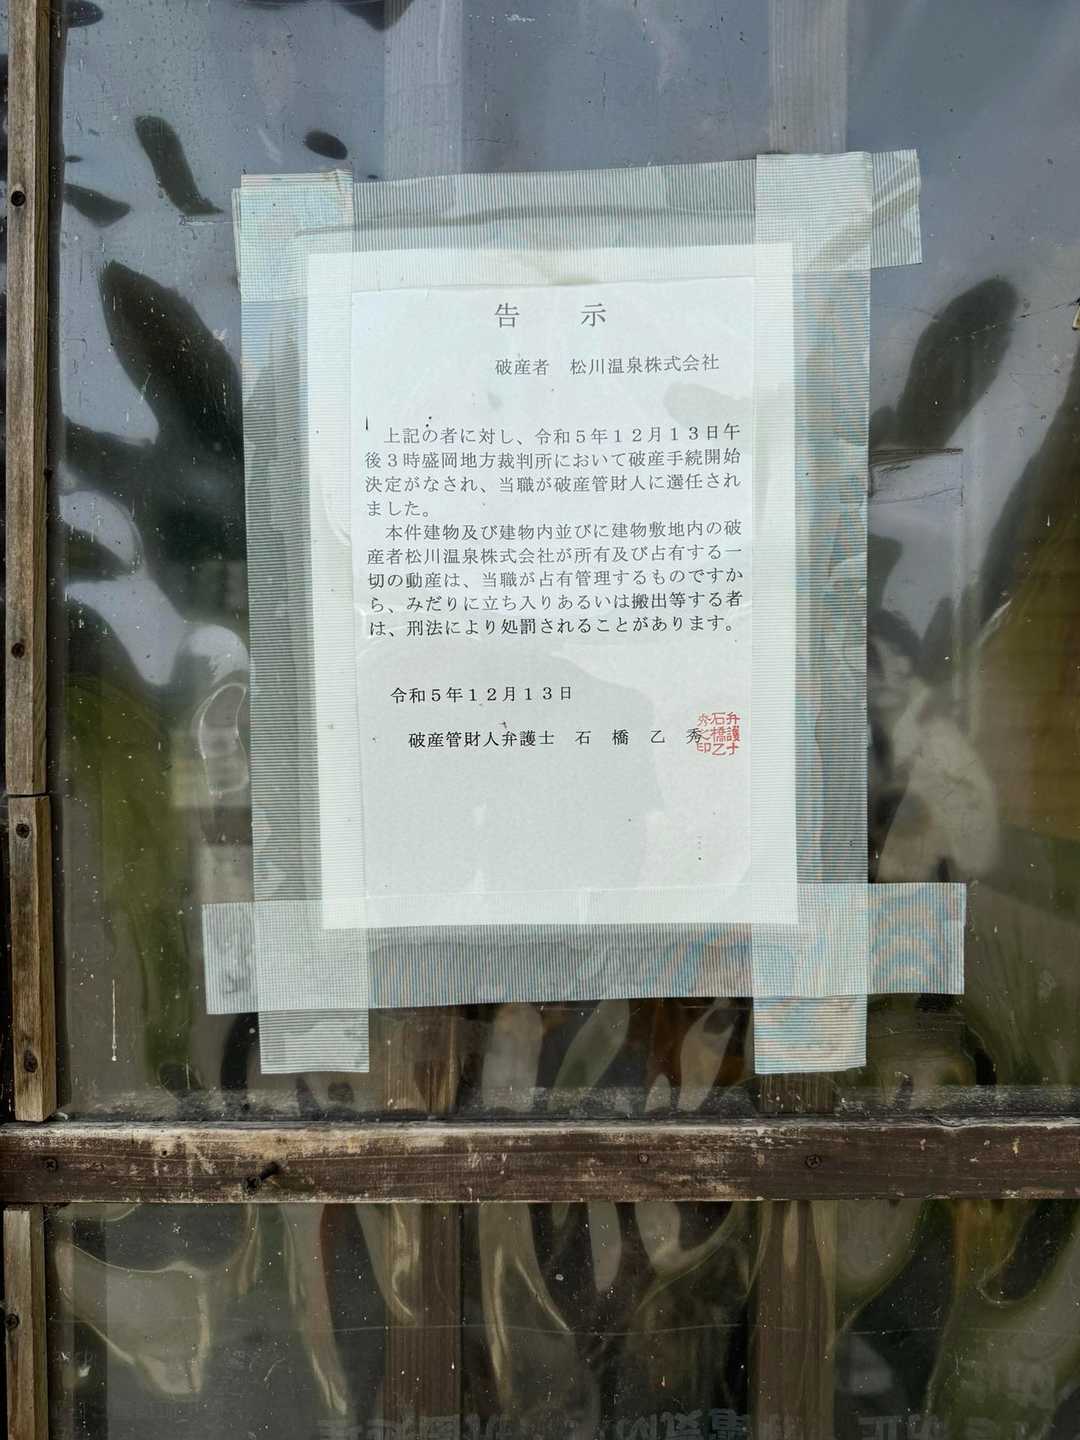 告　示
破産者　松川温泉株式会社
上記の者に対し、令和５年１２月１３日午
後３時盛岡地方裁判所において破産手続開始
決定がなされ、当職が破産管財人に選任され
ました。
本件建物及び建物内並びに建物敷地内の破
産者松川温泉株式会社が所有及び占有する一
切の動産は、当職が占有管理するものですか
ら、みだりに立ち入りあるいは搬出等する者
は、刑法により処罰されることがあります。
令和５年１２月１３日
破産管財人弁護士　石　橋　乙　秀
弁護士
石橋乙
秀之印